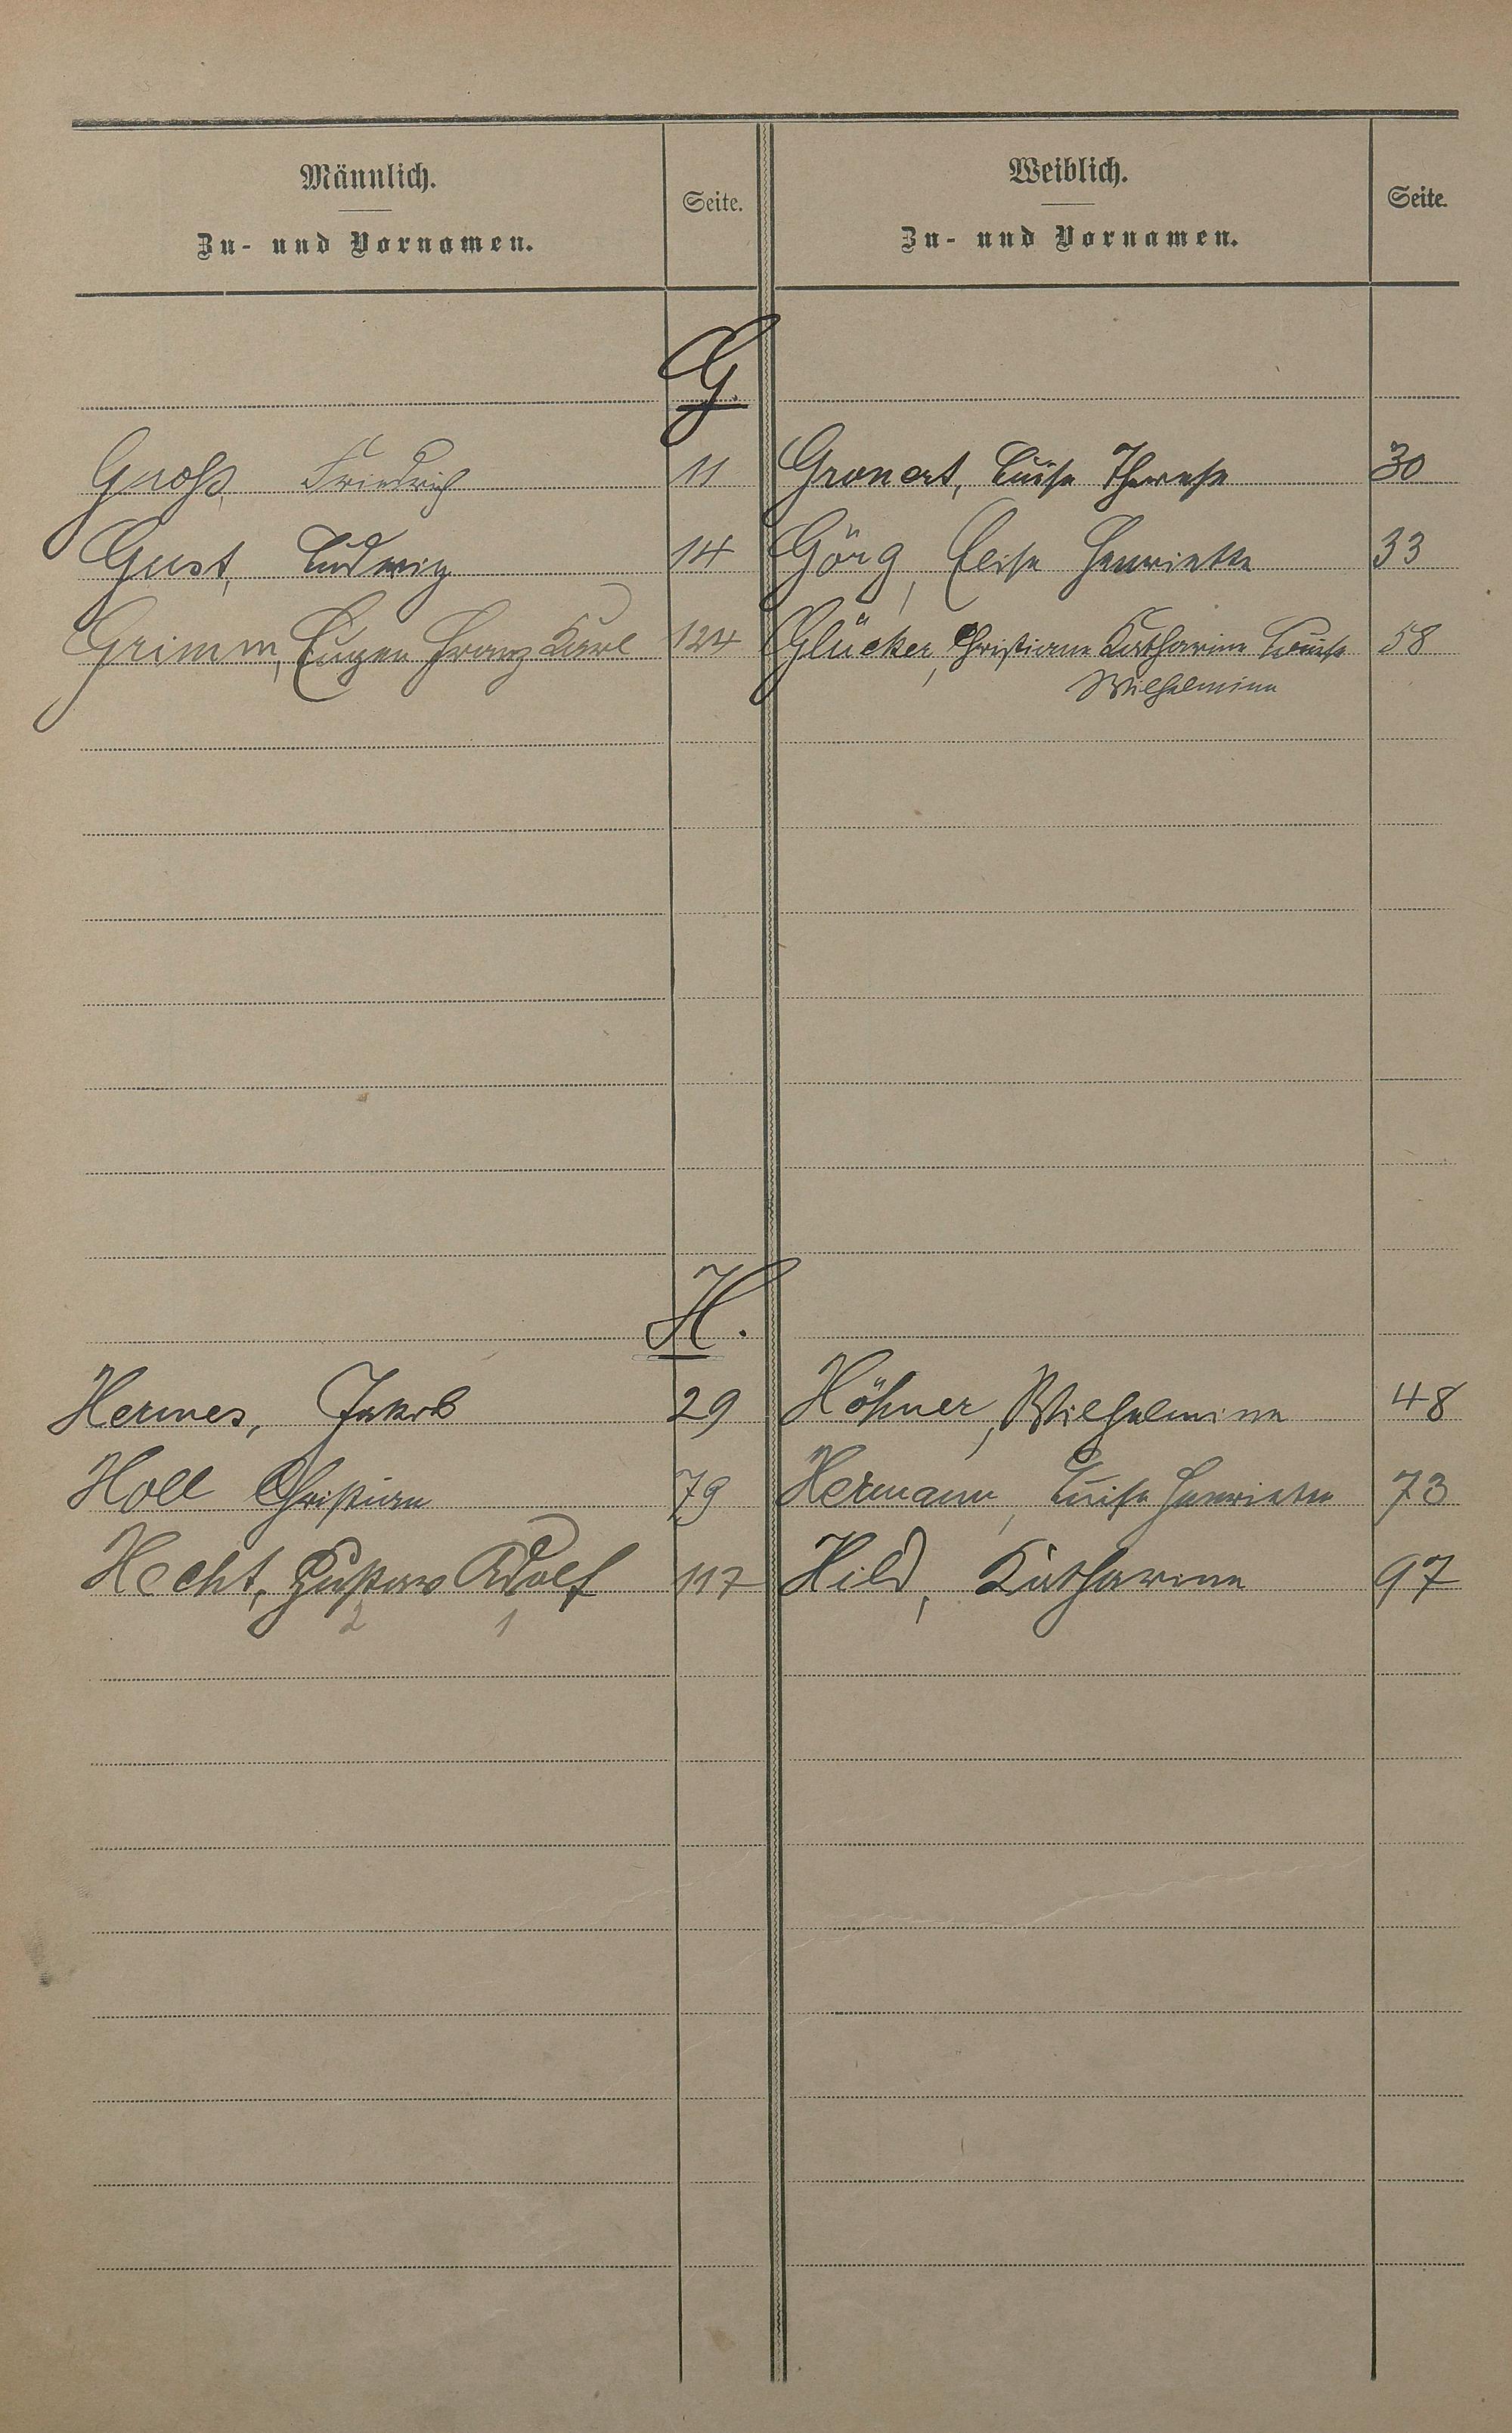 Männlich.
Zu- und Vornamen.
Seite.
Weiblich.
Zu- und Vornamen.
Seite.
G.
Groß, Friedrich 11 Gronert, Luise Therese 30
Gust, Ludwig 14 Görg, Elise Henriette 33
Grimm, Eugen Franz Karl 124 Glücker, Christiane Katharine Louise 58
Wilhelmine
H.
Hermes, Jakob 29 Höhner, Wilhelmine 48
Holl Christian 79 Hermann, Luise Henriette 73
Hecht, Gustav Adolf 117 Hild, Katharine 97
2 1